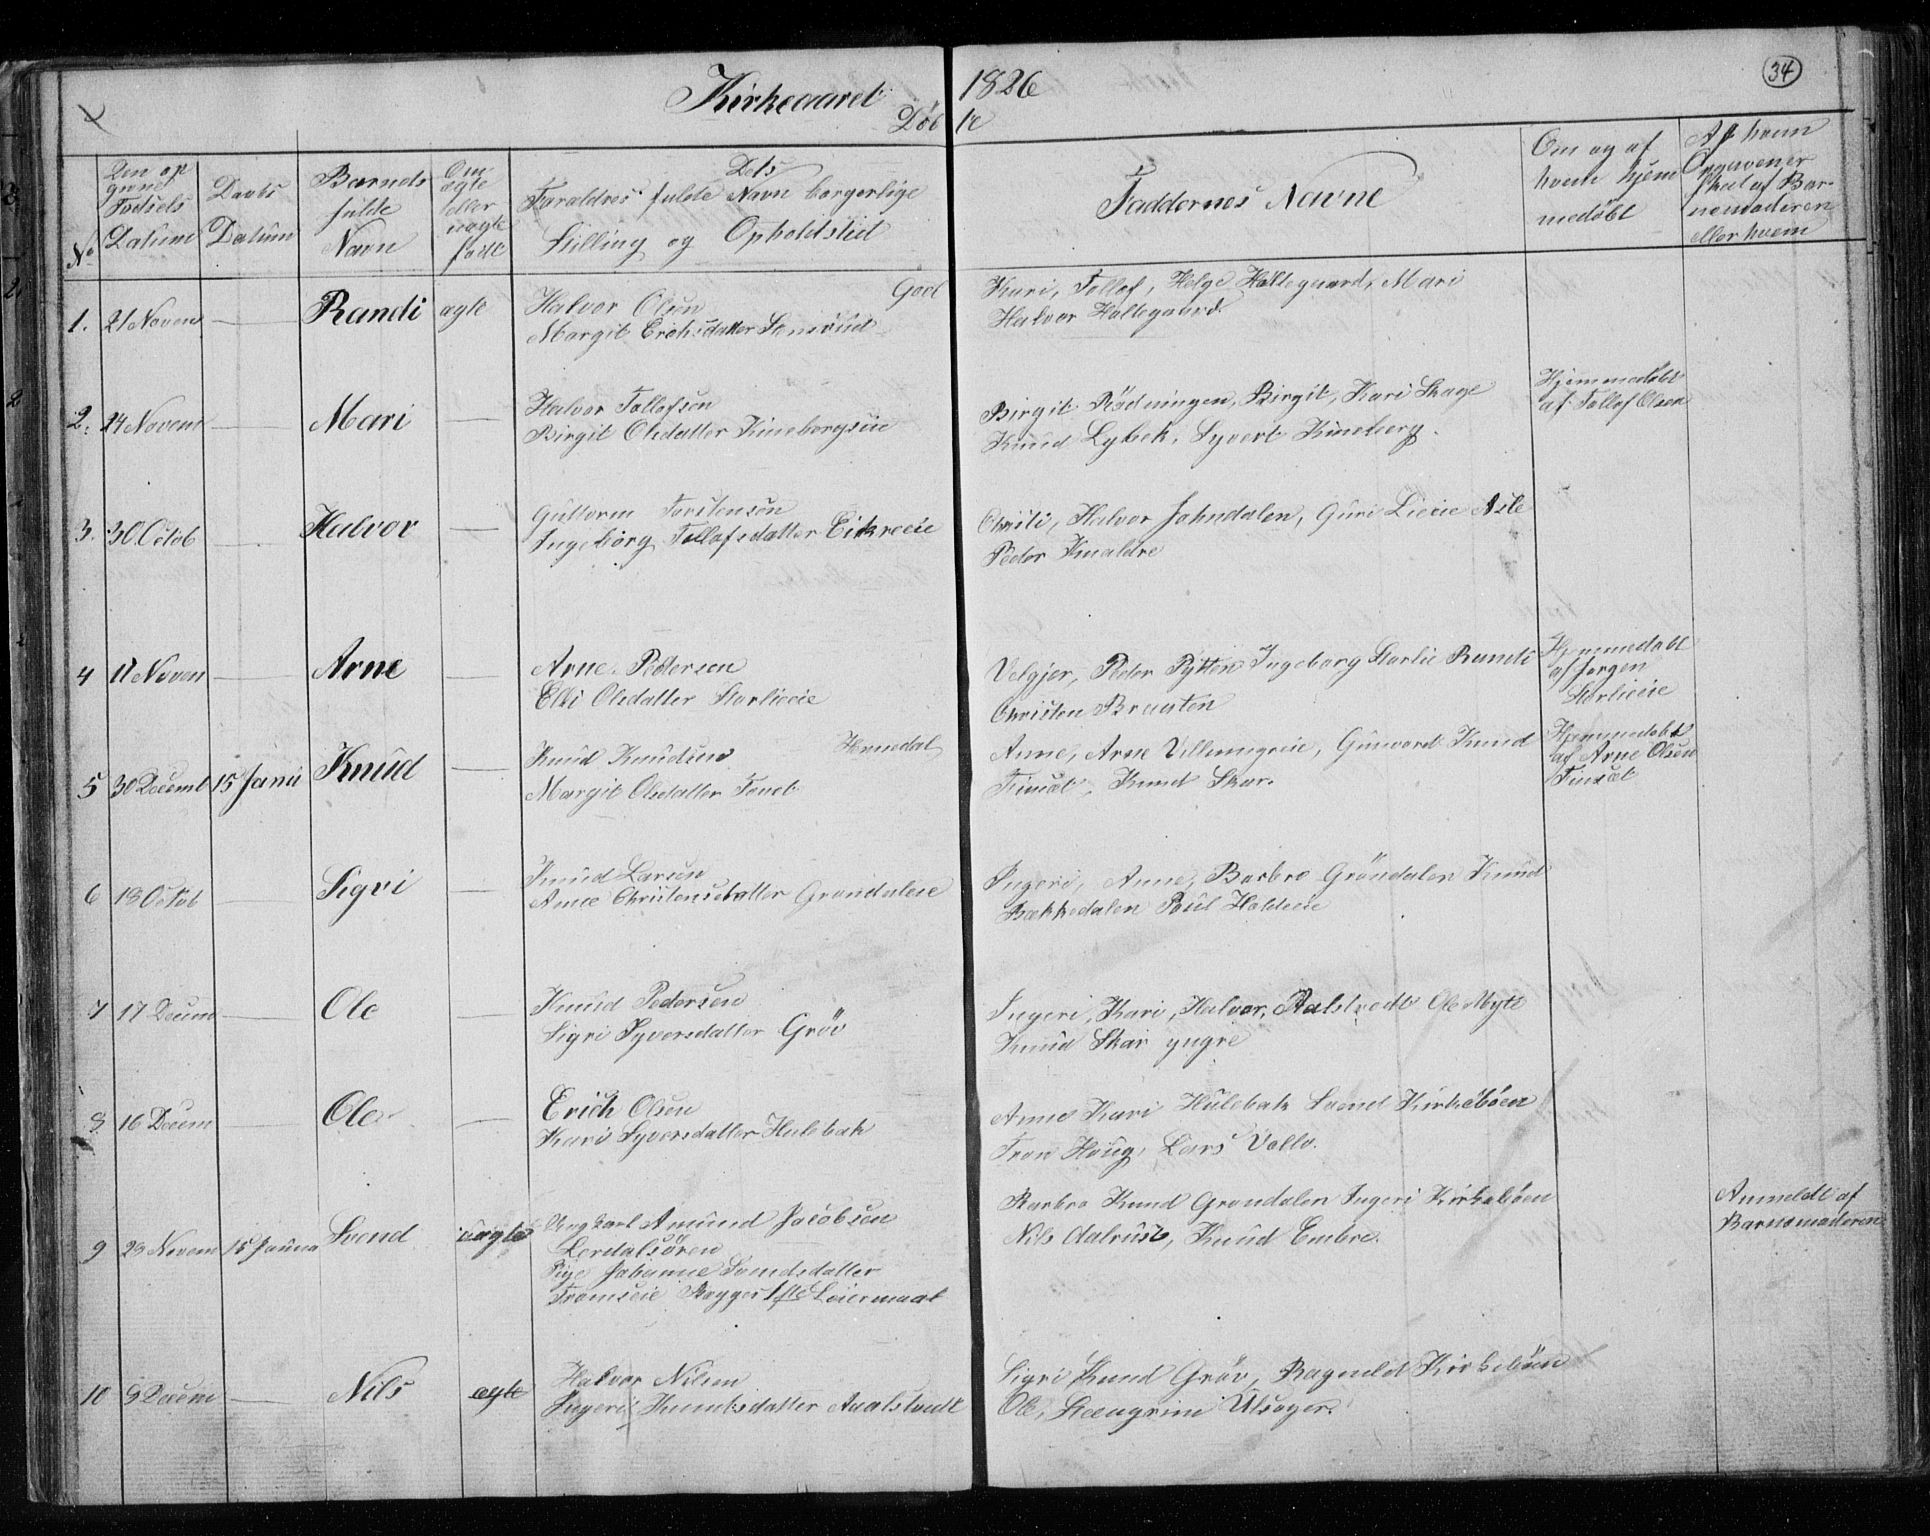 Kirkeaaret 1826
34
Døbte
No
Den op
givne
Fødsels
Datum
Daabs
Datum
Barnets
fulde
Navn
Om
ægte
eller
uægte
født
Dets
Foraldres fulde Navn borgerlige
Stilling og Opholdstid
Faddernes Navne
Om og af
hvem hjem
medøbt
Af hvem
Opgaven er
skeet af Bar-
nemoderen
eller hvem
1. 21 Novem — Randi ægte
Halvor Olsen Goel
Margit Erchsdatter
Kari, Tollof, Helge Hallegaard, Mari
Halvor Hallegaard.
2. 24 Novem — Mari —
Halvor Tollofsen
Birgit Olsdatter Kinebergseie
Birgit Rødningen, Birgit, Kari Skage
Knud Lybek, Syvert Kineberg.
Hjemmedøbt
af Tollof Olsen
3. 30 Octob — Halvor —
Guttorm Torstensen
Ingeborg Tollofsdatter Eikreeie
Christi, Halvor Jahndalen, Guri Lieeie Asle
Peder Knaldre
4 11 Noven — Arne —
Arne Pedersen
Elli Olsdatter Storlieeie
Velgjer, Peder Pytten Ingeborg Storlie Randi
Christen Braaten
Hjemmedøbt
af Jørgen
Storlieeie
5 30 Decemb 15 Janu Knud —
Knud Knudsen Hemsedal
Margit Olsdatter
Anne, Arne Gunvord Knud
Finset, Knud Skar.
Hjemmedøbt
af Arne Olsen
Finset
6 18 Octob — Sigri —
Knud Larsen
Anne Christensdatter Grøndaleie
Ingeri, Anne, Barbro Gröndalen Knud
Bækkedalen Poul Holdeeie
7 17 Decem — Ole —
Knud Pedersen
Sigri Syversdatter Gröv
Ingeri, Kari, Halvor, Ole Myte
Knud Skar yngre
8 16 Decem — Ole —
Erich Olsen
Kari Syversdatter Hulebak
Anne Kari Hulebak Svend Kirkebøen
Tron Houg, Lars Volle.
9 29 Novem 15 Janua Svend uægte
Ungkarl Amund Jacobsen
Lerdalsören
Pige Johanne
Begges 1ste Leiermaal
Barbro Knud Grøndalen Ingeri Kirkebøen
Nils Knud Embre.
Anmeldt af
Barnemoderen
10 9 Decem — Nils ægte
Halvor Nilsen
Ingeri Knudsdatter
Sigri Knud Gröv, Ragnild Kirkebøen
Ole, Steengrim Ulsager.